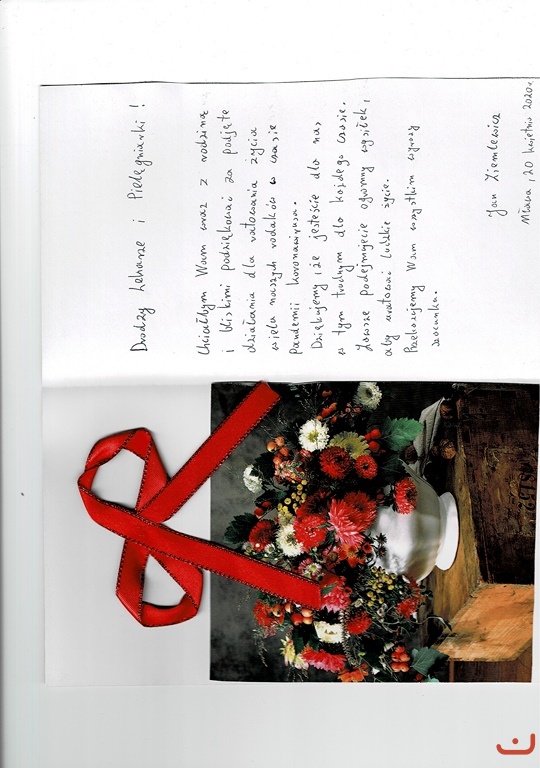 Drodzy Lekarze i Pielęgniarki!
Chciałbym Wam wraz z rodziną
i bliskimi podziękować za podjęte
działania dla ratowania życia
wielu naszych rodaków w czasie
pandemii koronawirusa.
Dziękujemy, że jesteście dla nas
w tym trudnym dla każdego czasie.
Zawsze podejmujecie ogromny wysiłek,
aby uratować ludzkie życie.
Przekazujemy Wam wszystkim wyrazy
szacunku.
Jan Ziemlewicz
Mława, 20 kwietnia 2020r.